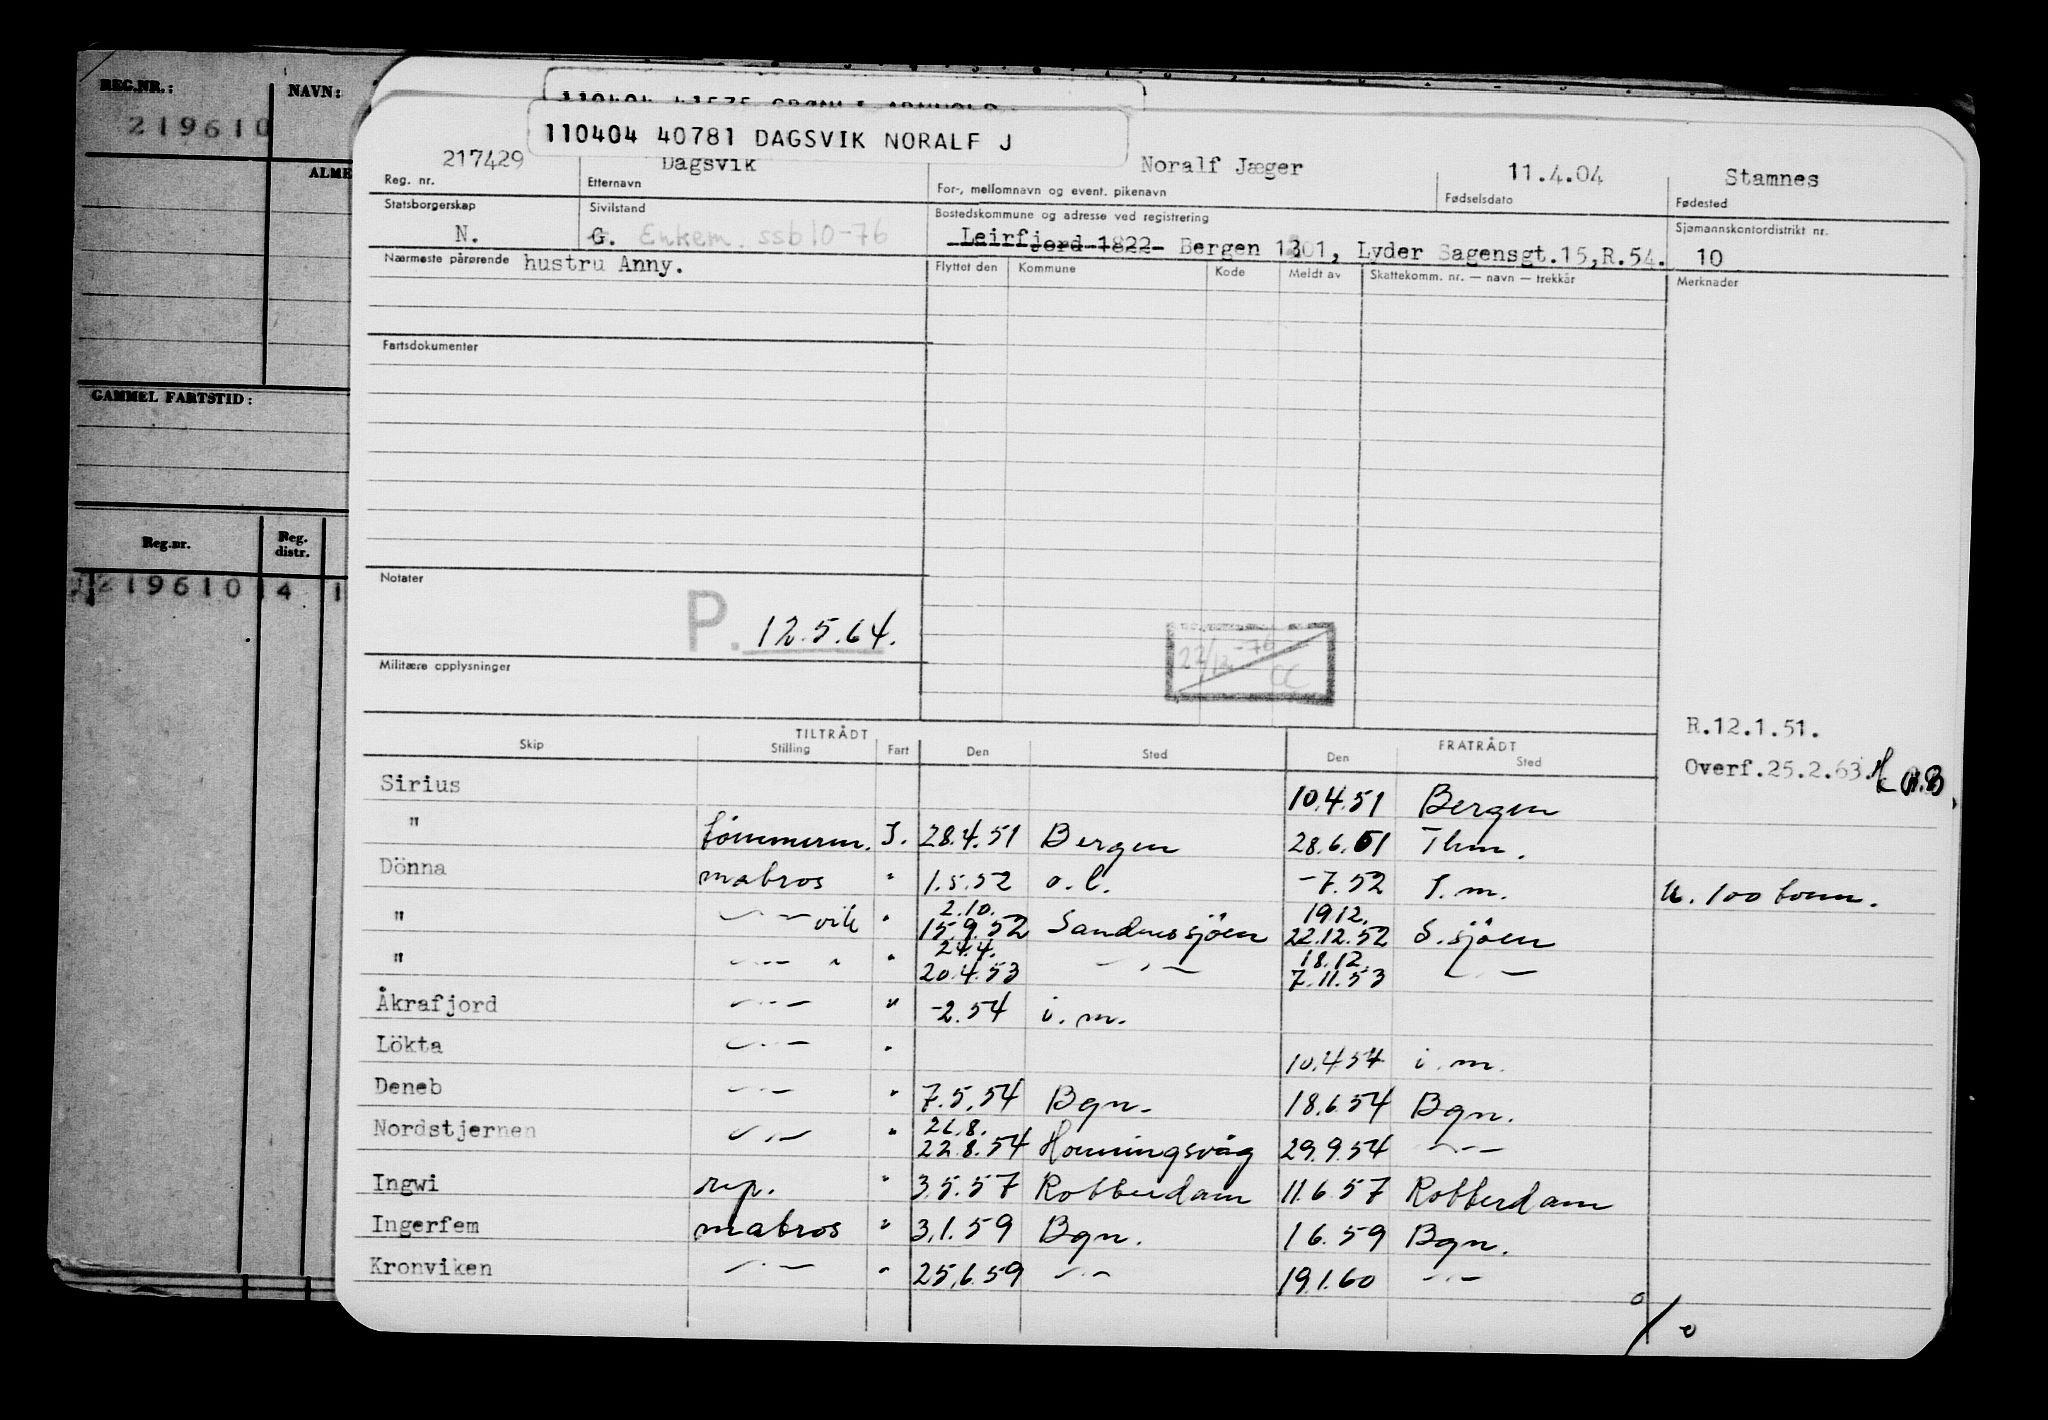 REG.NR.:
NAVN:
219610
ALME
GAMMEL FARTSTID:
Reg.nr.
Reg. distr.
219610 14 1
110404 40781 DAGSVIK NORALF J
217429 Dagsvik Noralf Jæger 11.4.04 Stamnes
Reg. nr. Etternavn For-, mellomnavn og event. pikenavn Fødselsdato Fødested
Statsborgerskap Sivilstand Bostedskommune og adresse ved registrering Sjømannskontordistrikt nr.
N. G. Enkem. ssb10-76 Leirfjord 1822 Bergen 1301, Lyder Sagensgt.15,R.54. 10
Nærmeste pårørende hustru Anny. Flyttet den Kommune Kode Meldt av Skattekomm. nr. — navn — trekkår Merknader
Fartsdokumenter
Notater
P. 12.5.64.
22/12-76
CC
Militære opplysninger
R.12.1.51.
TILTRÅDT FRATRÅDT
Skip Stilling Fart Den Sted Den Sted
Overf.25.2.63.
Sirius 10.4.51 Bergen
" tömmerm. I. 28.4.51 Bergen 28.6.51 Thm.
Dönna matros " 1.5.52 o.l. -7.52 I.m. u. 100 tonn.
2.10. 19.12.
" —"— vik " 15.9.52 Sandnessjöen 22.12.52 S.sjöen
24.4. 18.12.
" —"— " " 20.4.53 —"— 7.11.53 —"—
Åkrafjord —"— " -2.54 i.m.
Lökta —"— " 10.4.54 i.m.
Deneb —"— " 7.5.54 Bgn. 18.6.54 Bgn.
26.8.
Nordstjernen —"— " 22.8.54 Honningsvåg 29.9.54 —"—
Ingwi rep. " 3.5.57 Rotterdam 11.6.57 Rotterdam
Ingerfem matros " 3.1.59 Bgn. 1.6.59 Bgn.
Kronviken —"— " 25.6.59 —"— 19.1.60 —"—